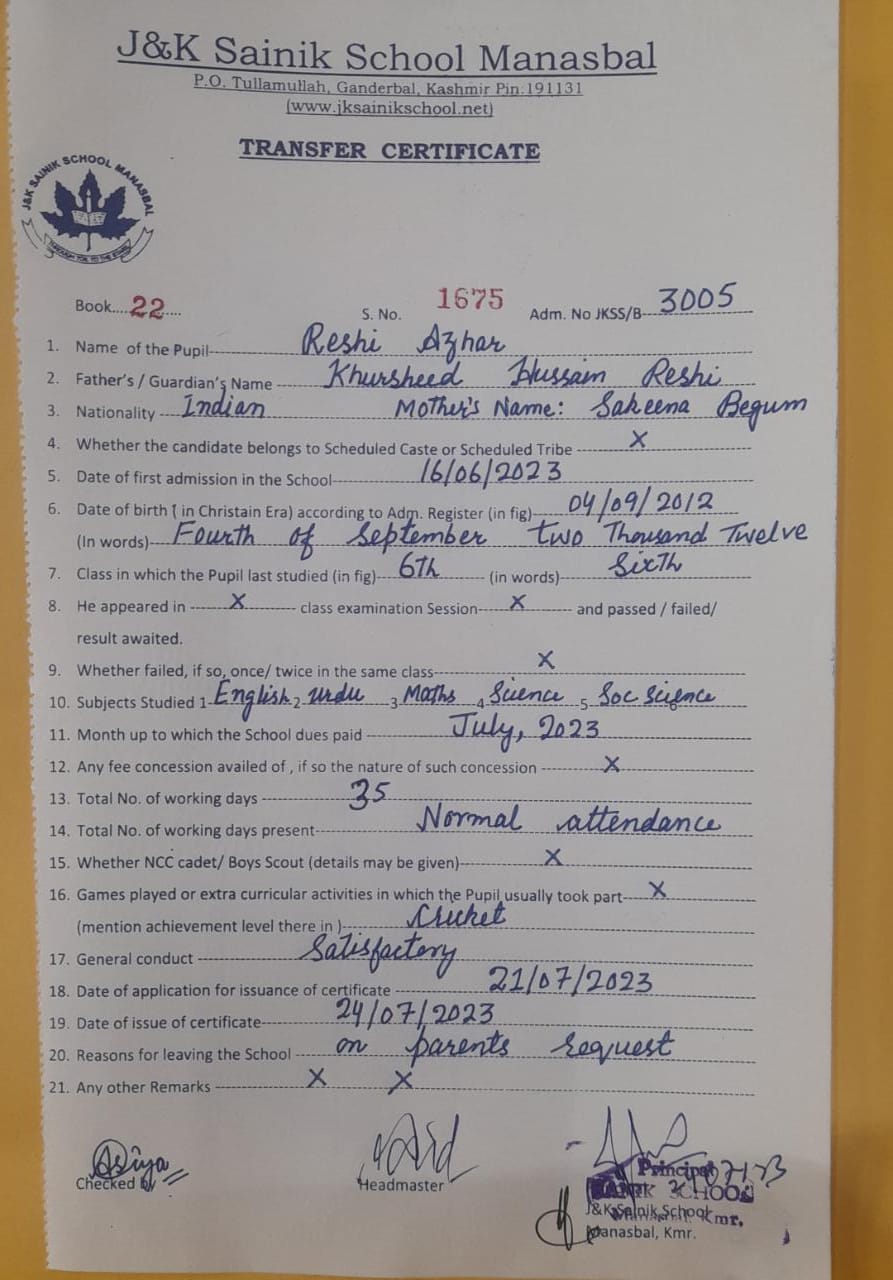 J&K Sainik School Manasbal
P.O. Tullamullah, Ganderbal, Kashmir Pin.191131
(www.jksainikschool.net)
TRANSFER CERTIFICATE
J&K SAINIK SCHOOL MANASBAL
THROUGH TOIL TO THE STARS
Book....22.... S. No. 1675 Adm. No JKSS/B- 3005
1. Name of the Pupil Reshi Azhar
2. Father's / Guardian's Name Khursheed Hussain Reshi
3. Nationality Indian Mother's Name: Sakeena Begum
4. Whether the candidate belongs to Scheduled Caste or Scheduled Tribe X
5. Date of first admission in the School 16/06/2023
6. Date of birth ( in Christain Era) according to Adm. Register (in fig) 04/09/2012
(In words) Fourth of September two Thousand Twelve
7. Class in which the Pupil last studied (in fig) 6Th (in words) SixTh
8. He appeared in X class examination Session X and passed / failed/
result awaited.
9. Whether failed, if so, once/ twice in the same class X
10. Subjects Studied 1 English 2 Urdu 3 Maths 4 Science 5 Soc Science 6
11. Month up to which the School dues paid July, 2023
12. Any fee concession availed of , if so the nature of such concession X
13. Total No. of working days 35
14. Total No. of working days present Normal attendance
15. Whether NCC cadet/ Boys Scout (details may be given) X
16. Games played or extra curricular activities in which the Pupil usually took part X
(mention achievement level there in ) Cricket
17. General conduct Satisfactory
18. Date of application for issuance of certificate 21/07/2023
19. Date of issue of certificate 24/07/2023
20. Reasons for leaving the School on parents request
21. Any other Remarks X X
Asiya
Checked by Headmaster Principal
SCHOOL
J&K Sainik School
Kmr.
Manasbal, Kmr.